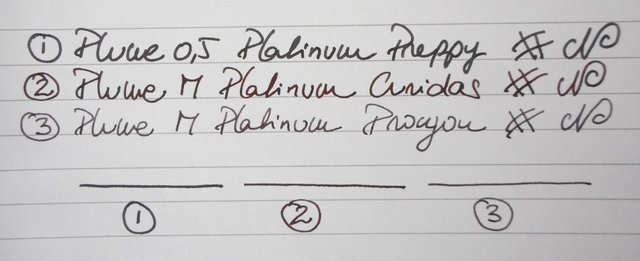 ① Plume 0,5 Platinum Preppy # №
② Plume M Platinum Curidas # №
③ Plume M Platinum Procyon # №
① ② ③